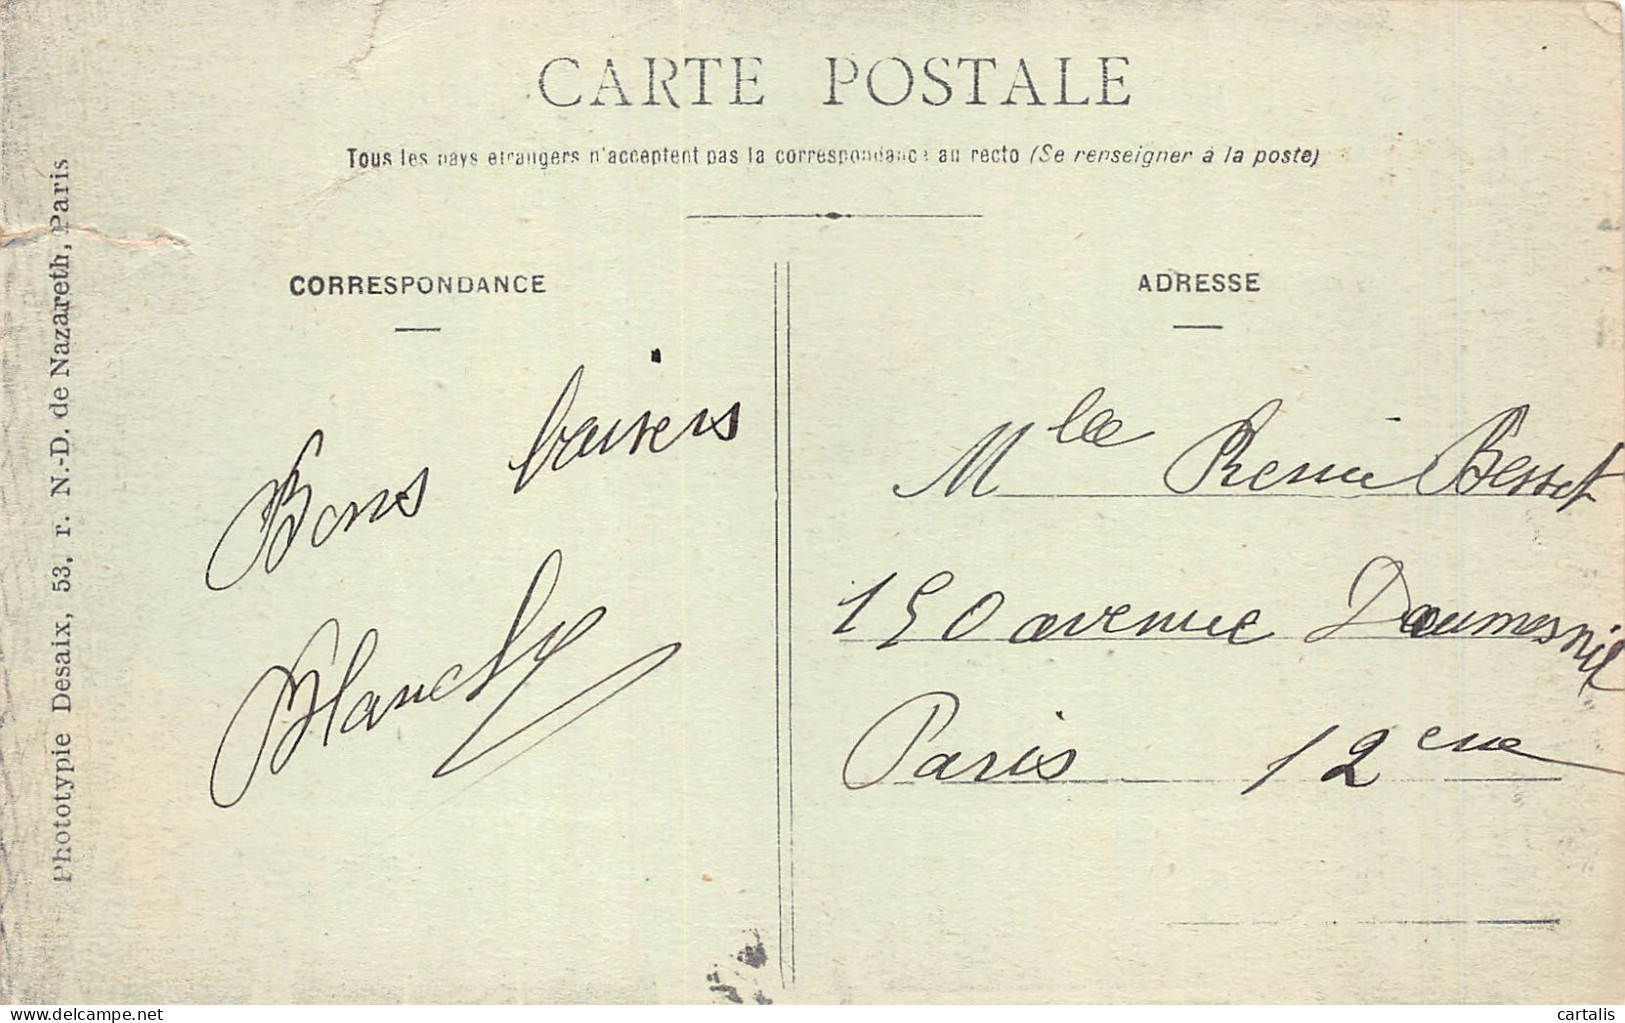 CARTE POSTALE
Tous les pays etrangers n'acceptent pas la correspondance au recto (Se renseigner à la poste)
Phototypie Desaix, 53, r. N.-D. de Nazareth, Paris
CORRESPONDANCE
Bons baisers
Blanche
ADRESSE
Mlle Renée Besset
150 avenue Daumesnil
Paris 12eme
www.delcampe.net
cartalis